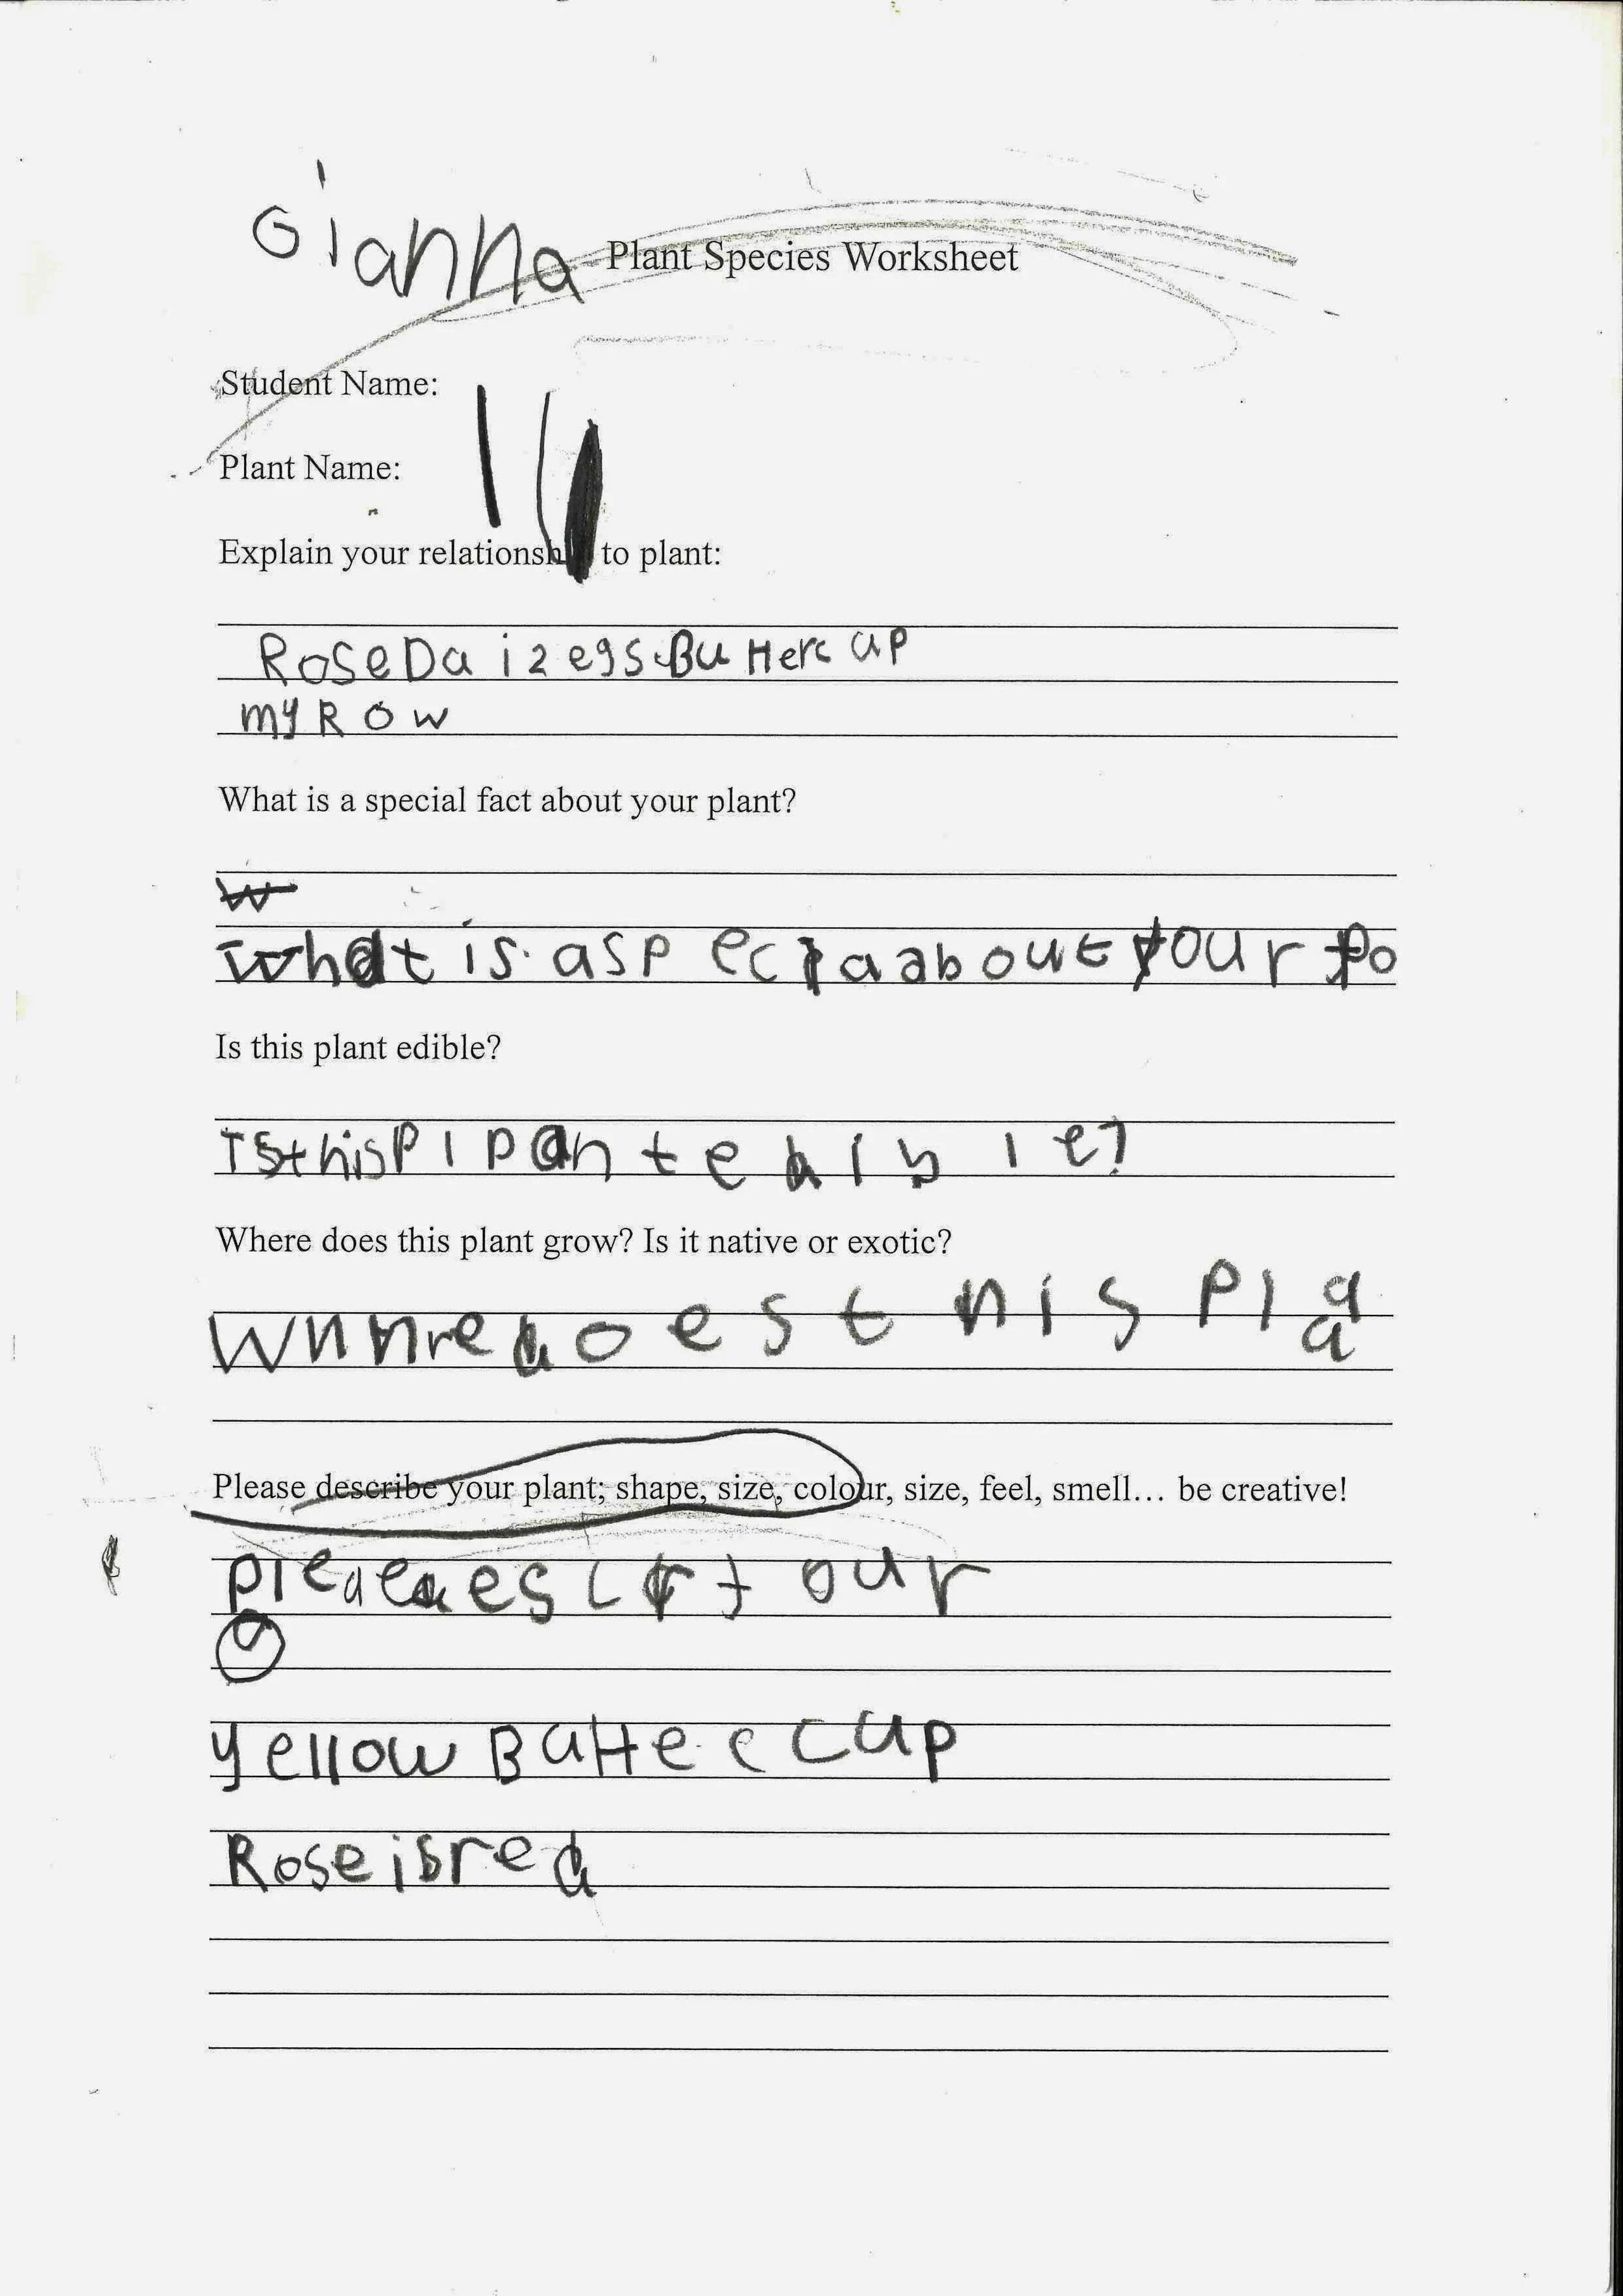 Gianna
Plant Species Worksheet
Student Name:
Plant Name:
Explain your relationship to plant:
Rose Da izegs Buttercup
my Row
What is a special fact about your plant?
W
What is aspeciaabout your Po
Is this plant edible?
Isthisplpantedible?
Where does this plant grow? Is it native or exotic?
Wnhredoesthispla
Please describe your plant; shape, size, colour, size, feel, smell... be creative!
our
yellow Buttercup
Rose isred